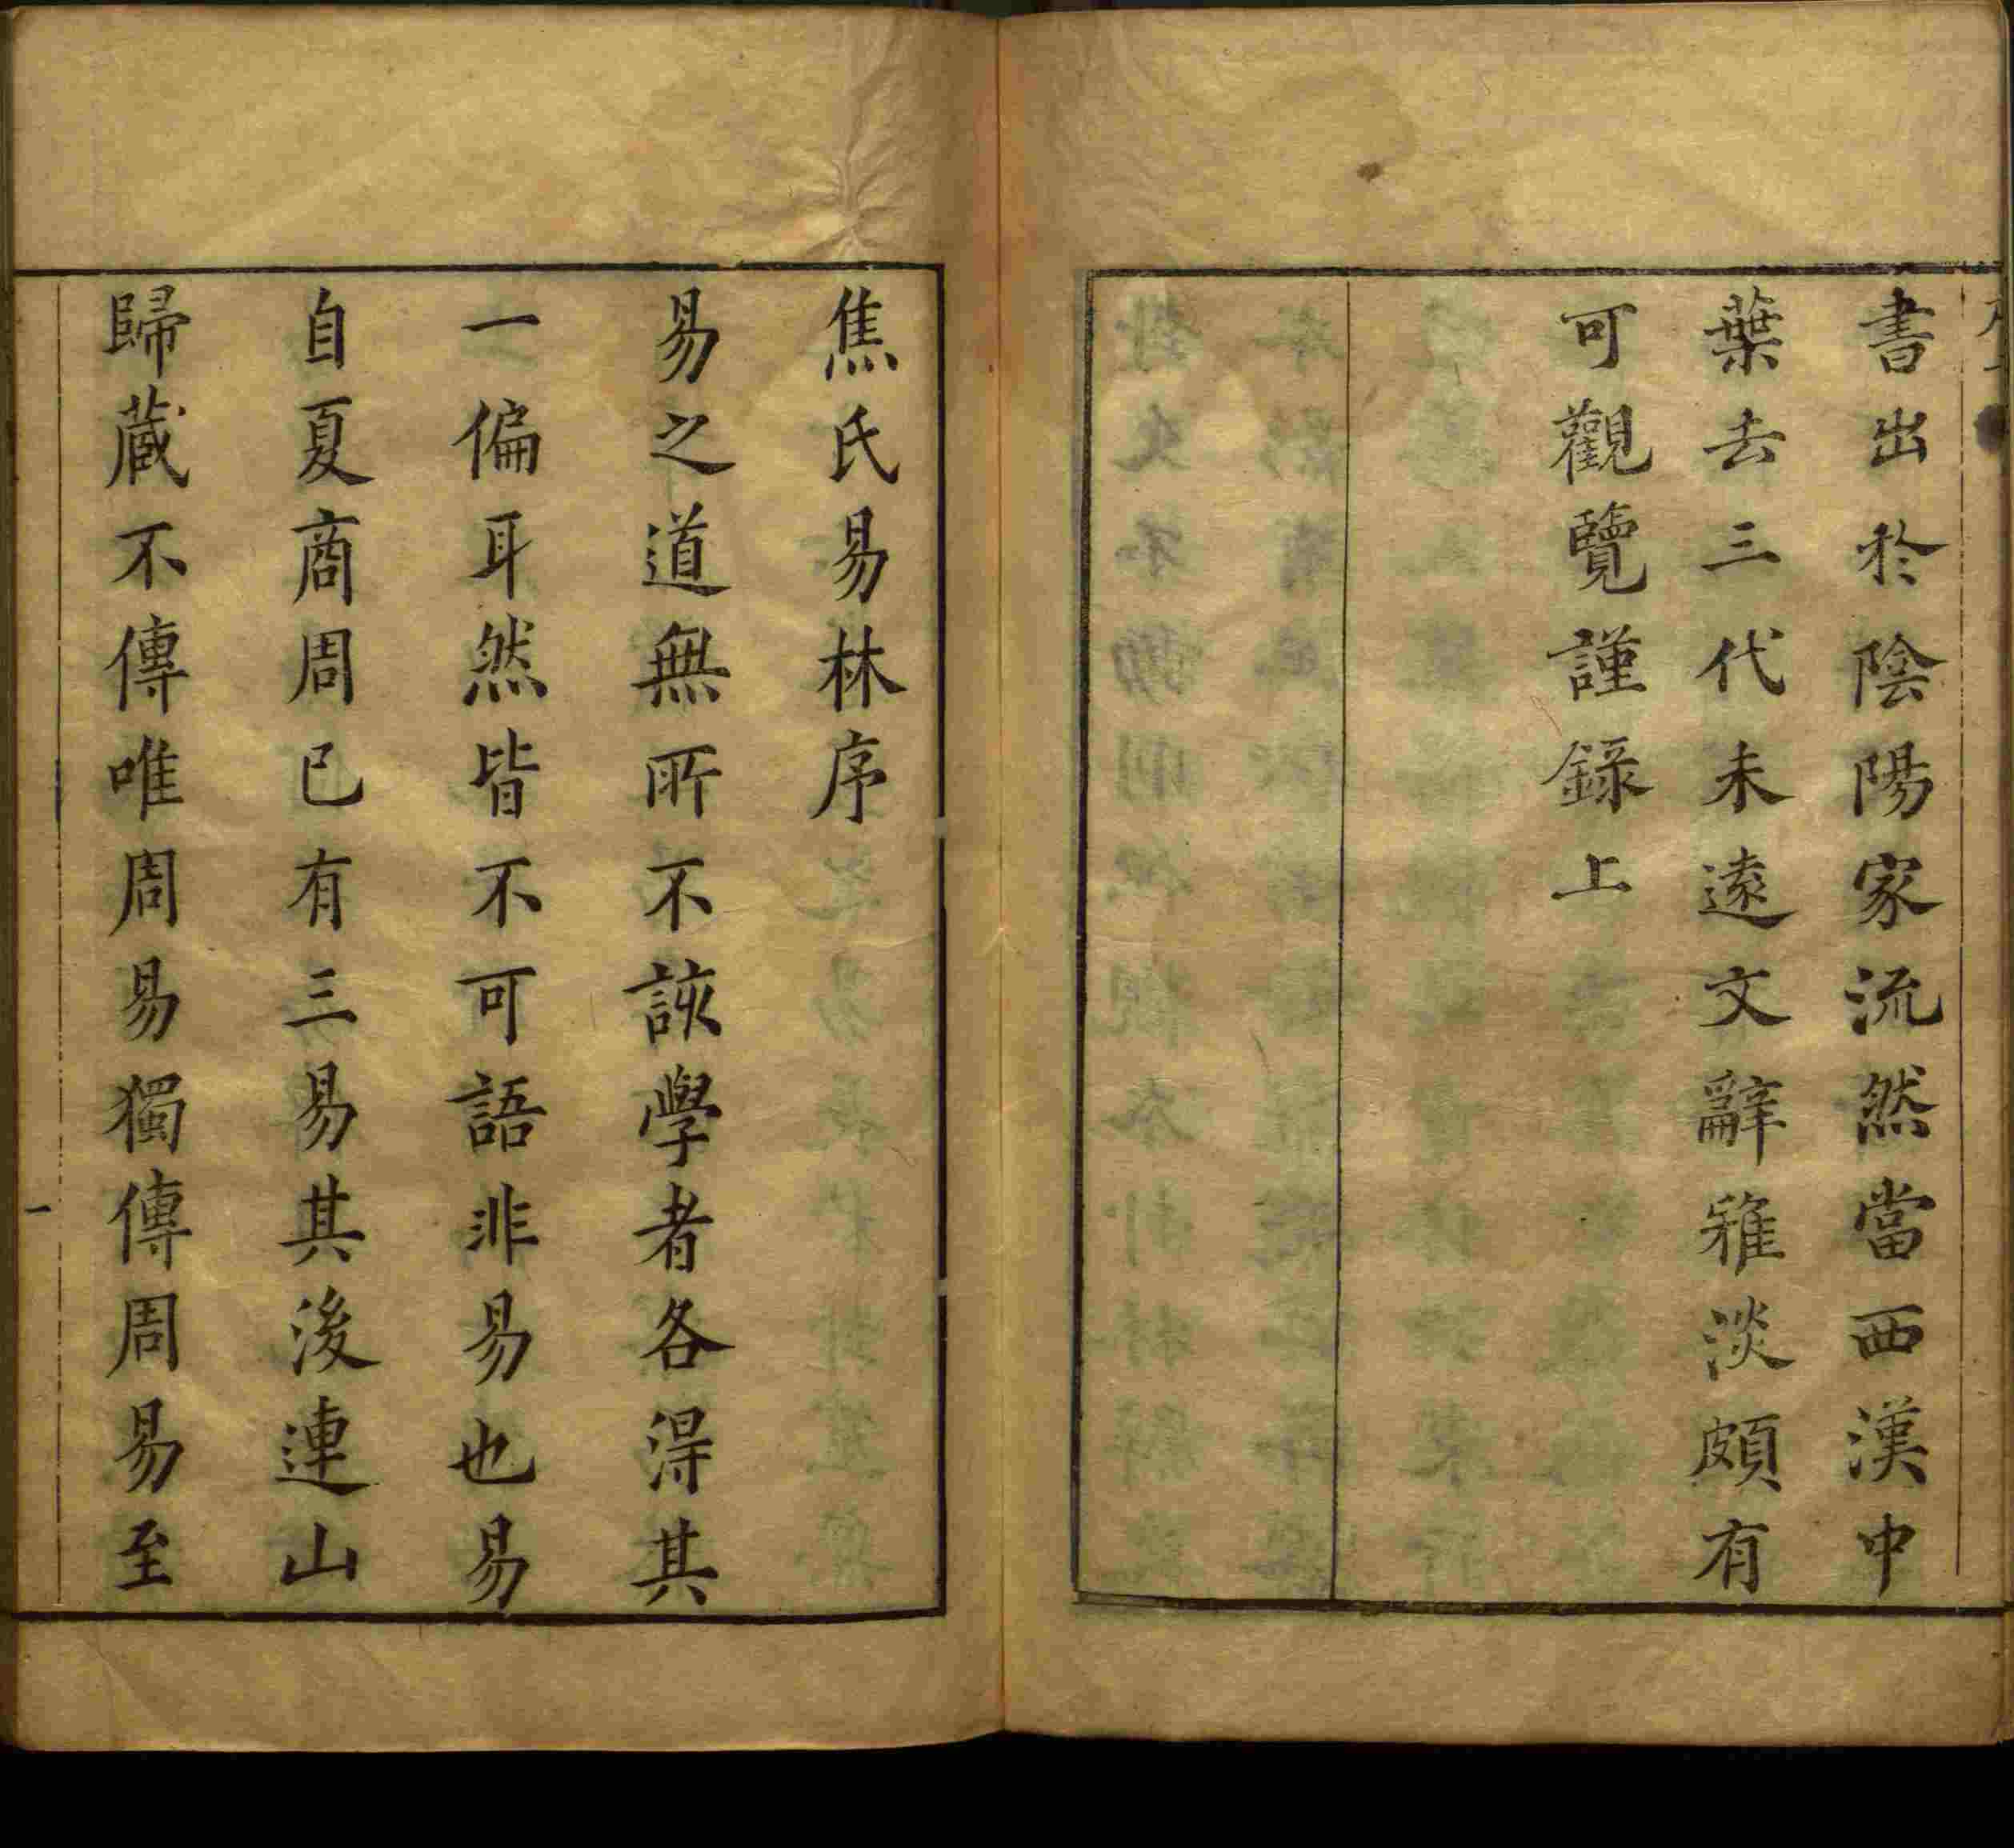 書出於陰陽家流然當西漢中
葉去三代未遠文辭雅淡頗有
可觀覽謹錄上
焦氏易林序
易之道無所不該學者各得其
一偏耳然皆不可語非易也易
自夏商周已有三易其後連山
歸藏不傳唯周易獨傳周易至
一